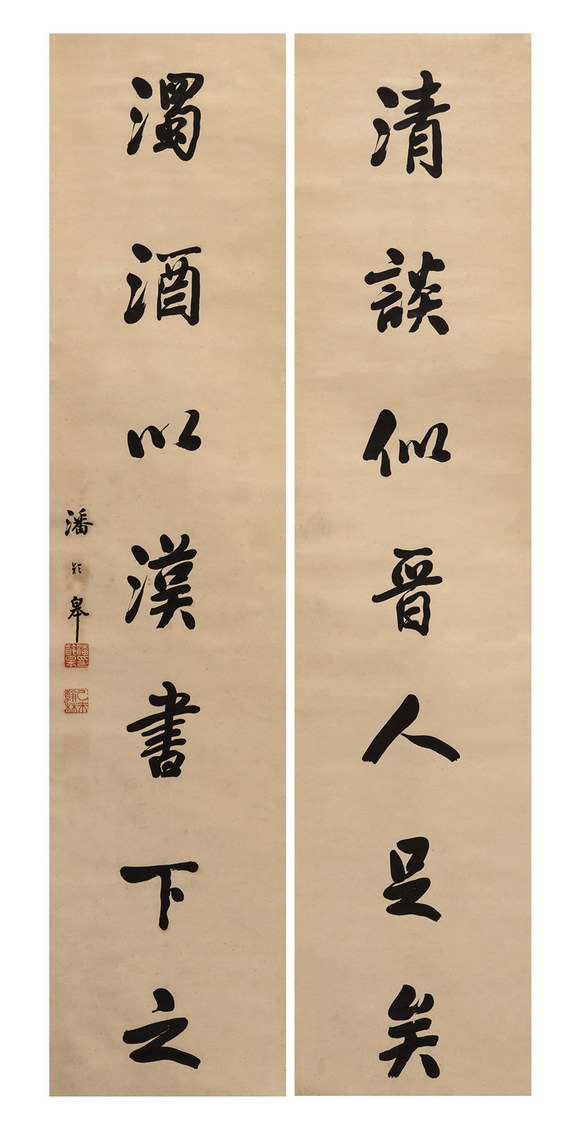 清談似晋人足矣
濁酒以漢書下之
潘龄皋